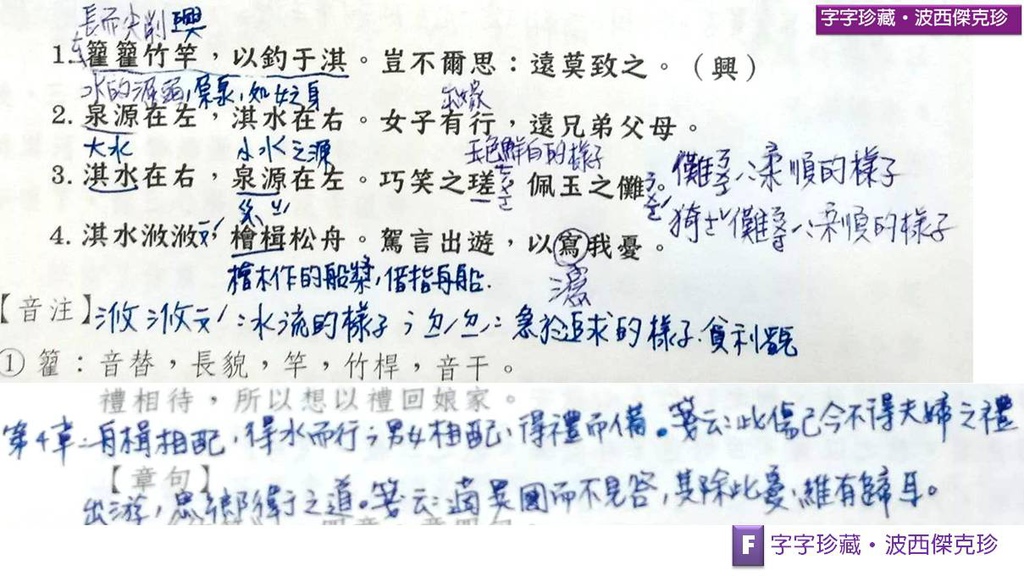 字字珍藏•波西傑克珍
長而尖削 興
1. 籊籊竹竿，以釣于淇。豈不爾思：遠莫致之。（興）
水的源頭，泉，如女之身
出嫁
2. 泉源在左，淇水在右。女子有行，遠兄弟父母。
大水 小水之源 玉色鮮白的樣子
3. 淇水在右，泉源在左。巧笑之瑳，佩玉之儺。
儺ㄋㄨㄛˊ：柔順的樣子
猗ㄧ儺ㄋㄨㄛˊ：柔順的樣子
4. 淇水浟浟，檜楫松舟。駕言出遊，以寫我憂。
檜木作的船槳，借指舟船。
瀉
【音注】浟浟ㄧㄡˊ：水流的樣子；ㄉㄧˊㄉㄧˊ：急於追求的樣子。貪利貌
① 籊：音替，長貌，竿，竹桿，音干。
禮相待，所以想以禮回娘家。
第4章：舟楫相配，得水而行；男女相配，得禮而備。箋云：此傷己今不得夫婦之禮
【章句】
出游，思鄉衛之道。箋云：適異國而不見答，其除此憂，維有歸耳。
F 字字珍藏•波西傑克珍